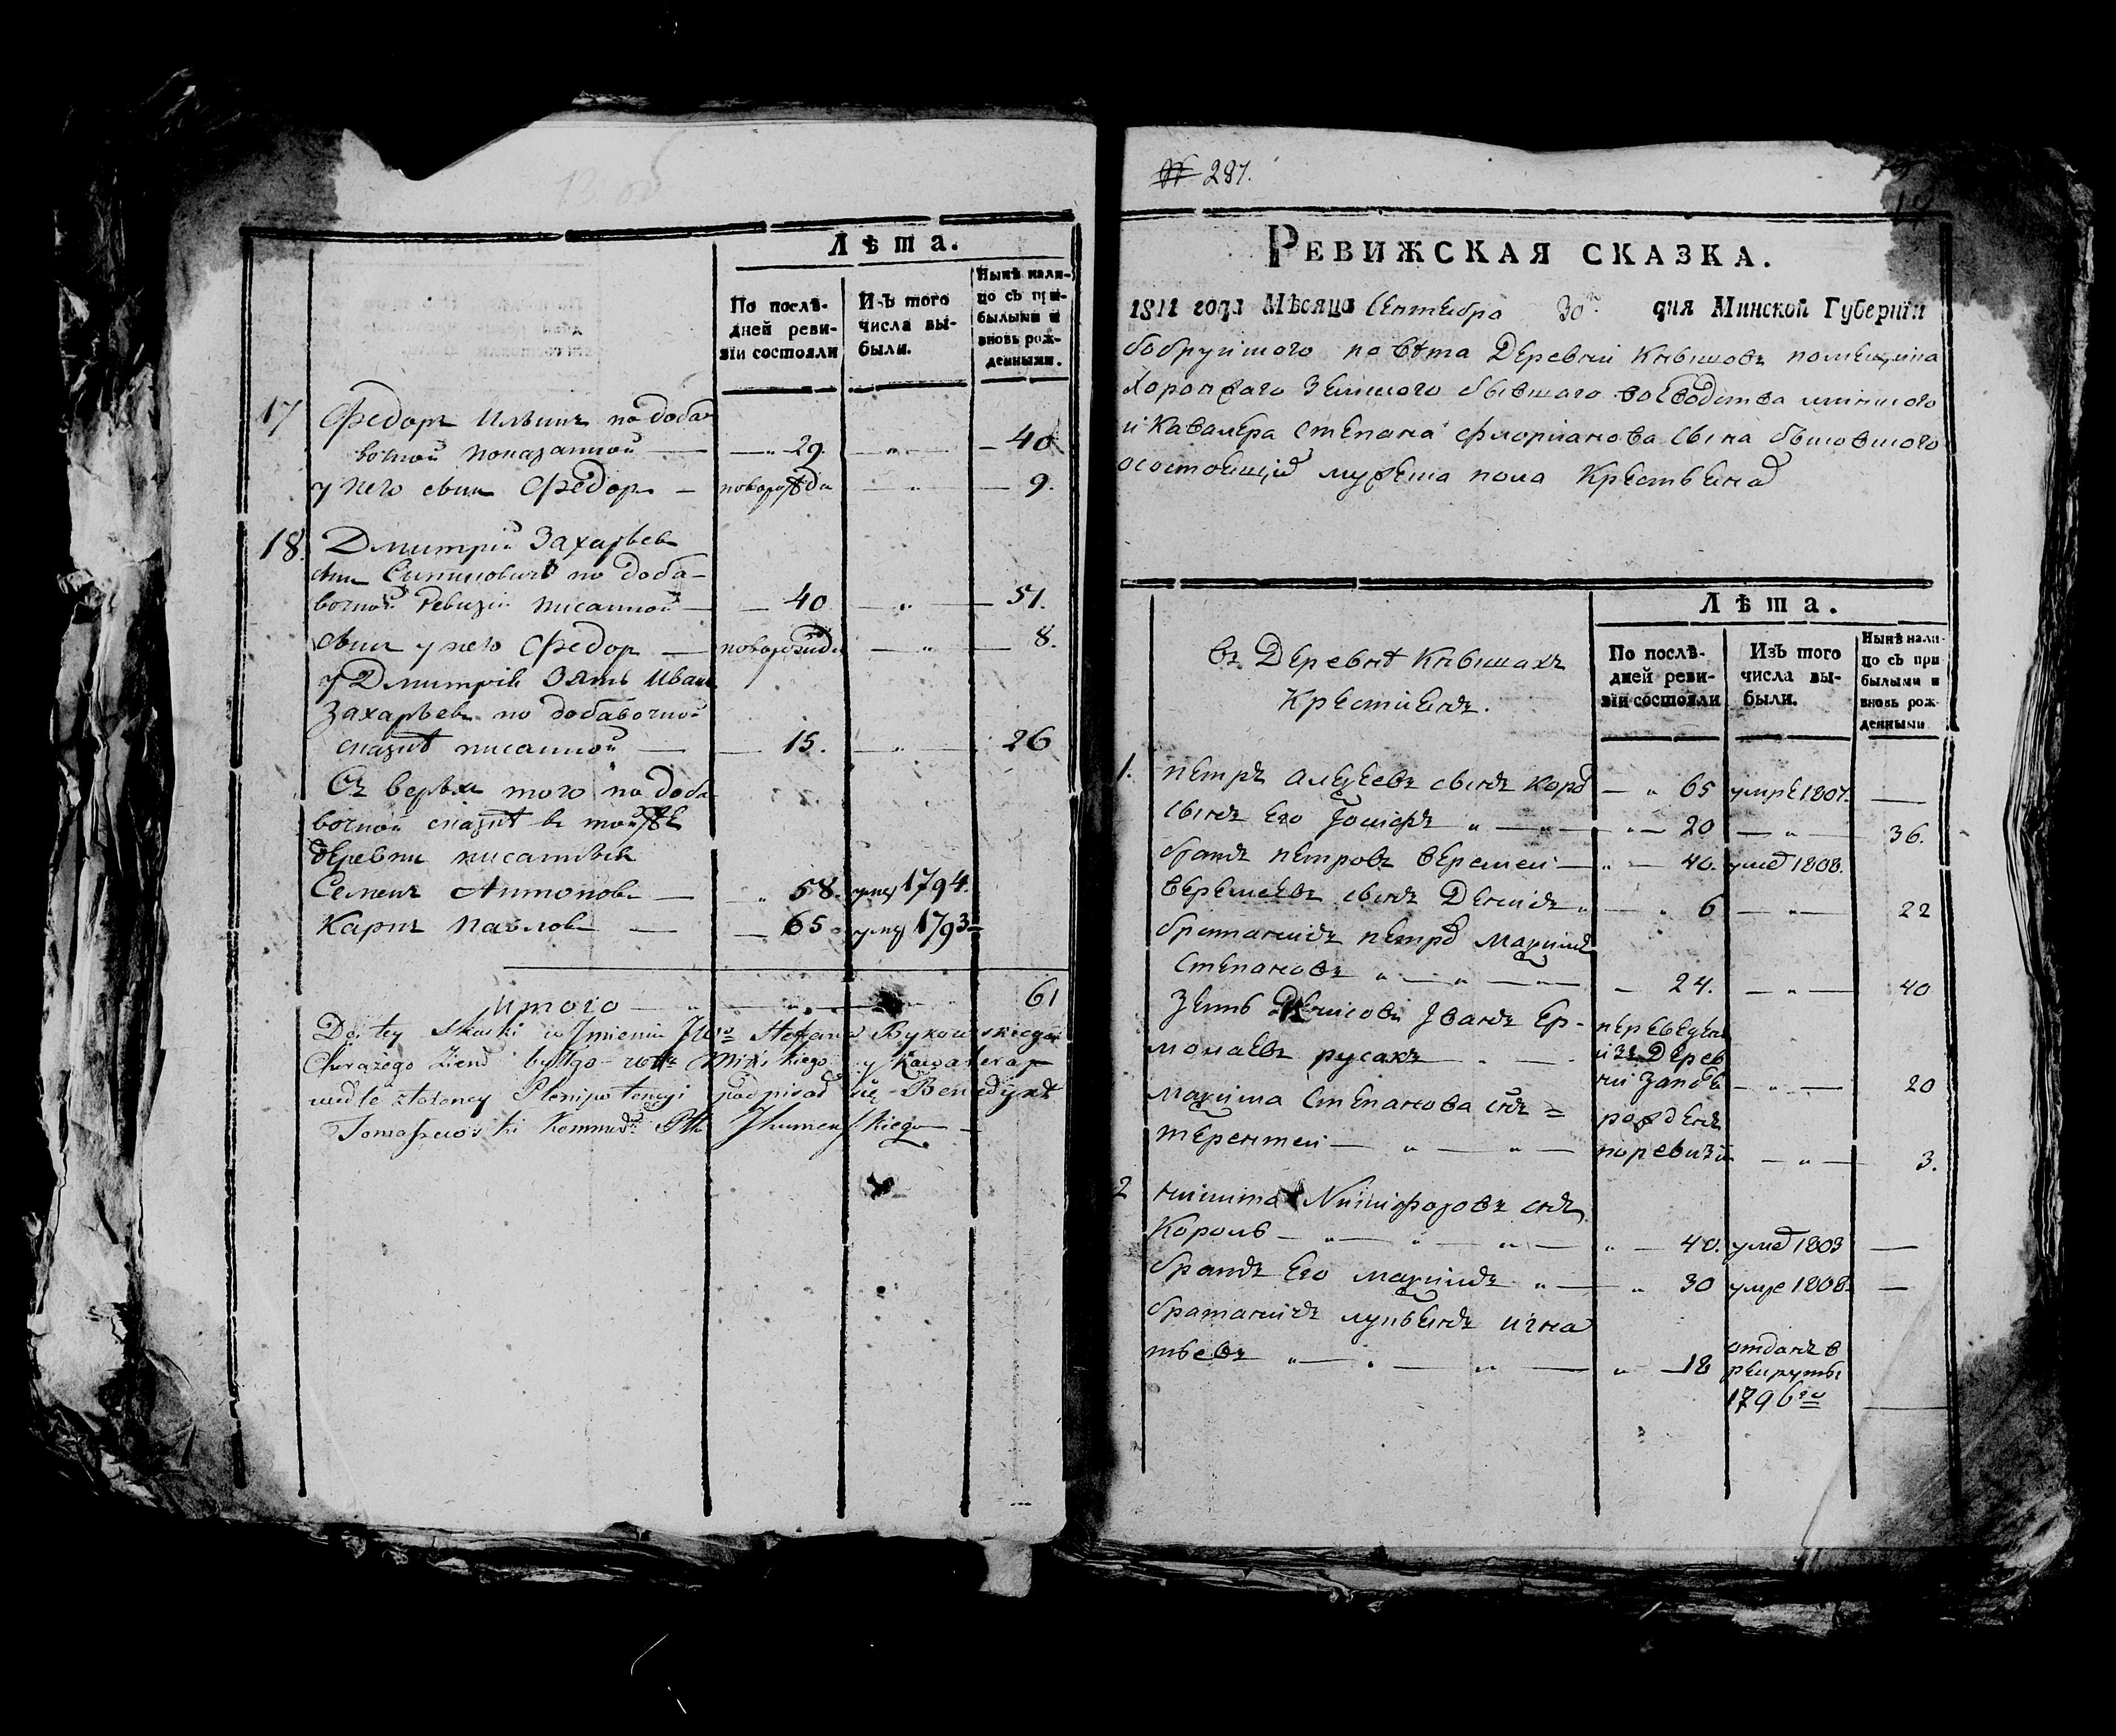 13 об
Лѣта.
По послѣ-
дней реви-
зіи состояли
Изъ того
числа вы-
были.
Нынѣ нали-
цо съ при-
былыми и
вновь рож-
денными.
17 Федоръ Ильинъ по доба-
вочной показанной — 29. — " — 40
у него сынъ Федоръ — новорожден — " — 9.
18. Дмитрій Захарьевъ
сынъ по доба-
вочной ревизіи писанной — 40 — " — 51.
сынъ у него Федор — новорожден — " — 8.
у Дмитрія Зять Иванъ
Захарьевъ по добавочной
сказкѣ писанной — 15. — " — 26
Съ верьхъ того по доба-
вочной сказкѣ в той же
деревни писанныя
Семенъ Антоновъ — " 58. умер 1794.
Карпъ Павловъ — 65 умер 1793
Итого — 61
Do tey Skaski w Jmieniu JW° Stefana Bykowskiego
Chorążego Ziem bywłgo Wdtwa Mińskiego y Kawalera
wedle złożoney Plenipotencyi podpisał się Benedykt
Tomaszewski Kommr Ptu Jhumenskiego
№ 287.
14
Ревижская сказка.
1811 года Мѣсяца Сентебра 30го дня Минской Губерніи
бобруйского повѣта Деревни помещика
ХоронжагоЗемского бывшаго воеводства минского
и Кавалера Степана флорианова сына быковского
о состоящих мужеска пола Крестьянах
Лѣта.
въ Деревнѣ
Крестиянъ.
По послѣ-
дней реви-
зіи состояли
Изъ того
числа вы-
были.
Нынѣ нали-
цо съ при
былыми и
вновь рож-
денными
1. петръ алеѯеевъ сынъ — " 65 умре 1807. —
сынъ Его Іосифъ " — " — 20 — " — 36.
братъ петровъ Веремей — " — 40. умер 1808.
веремеевъ сынъ Денисъ " — " 6 — " — 22
братаничъ петра Маѯимъ
Степановъ " — " — 24. — " — 40
Зеть Денисовъ Іванъ Ер- переведен
молаевъ русакъ — " — изъ Дерев
ни — " — 20
маѯима Степанова снъ = рожденъ
терентей — " — " — поревизіи — " — 3.
2 никита Никифоровъ снъ
Король — " — " — " — 40. умер 1803 —
братъ Его маѯимъ " — " 30 умре 1808. —
братаничъ лукьянъ игна
тьевъ " — " — " — " — 18 отданъ в
рекруты
1796го —